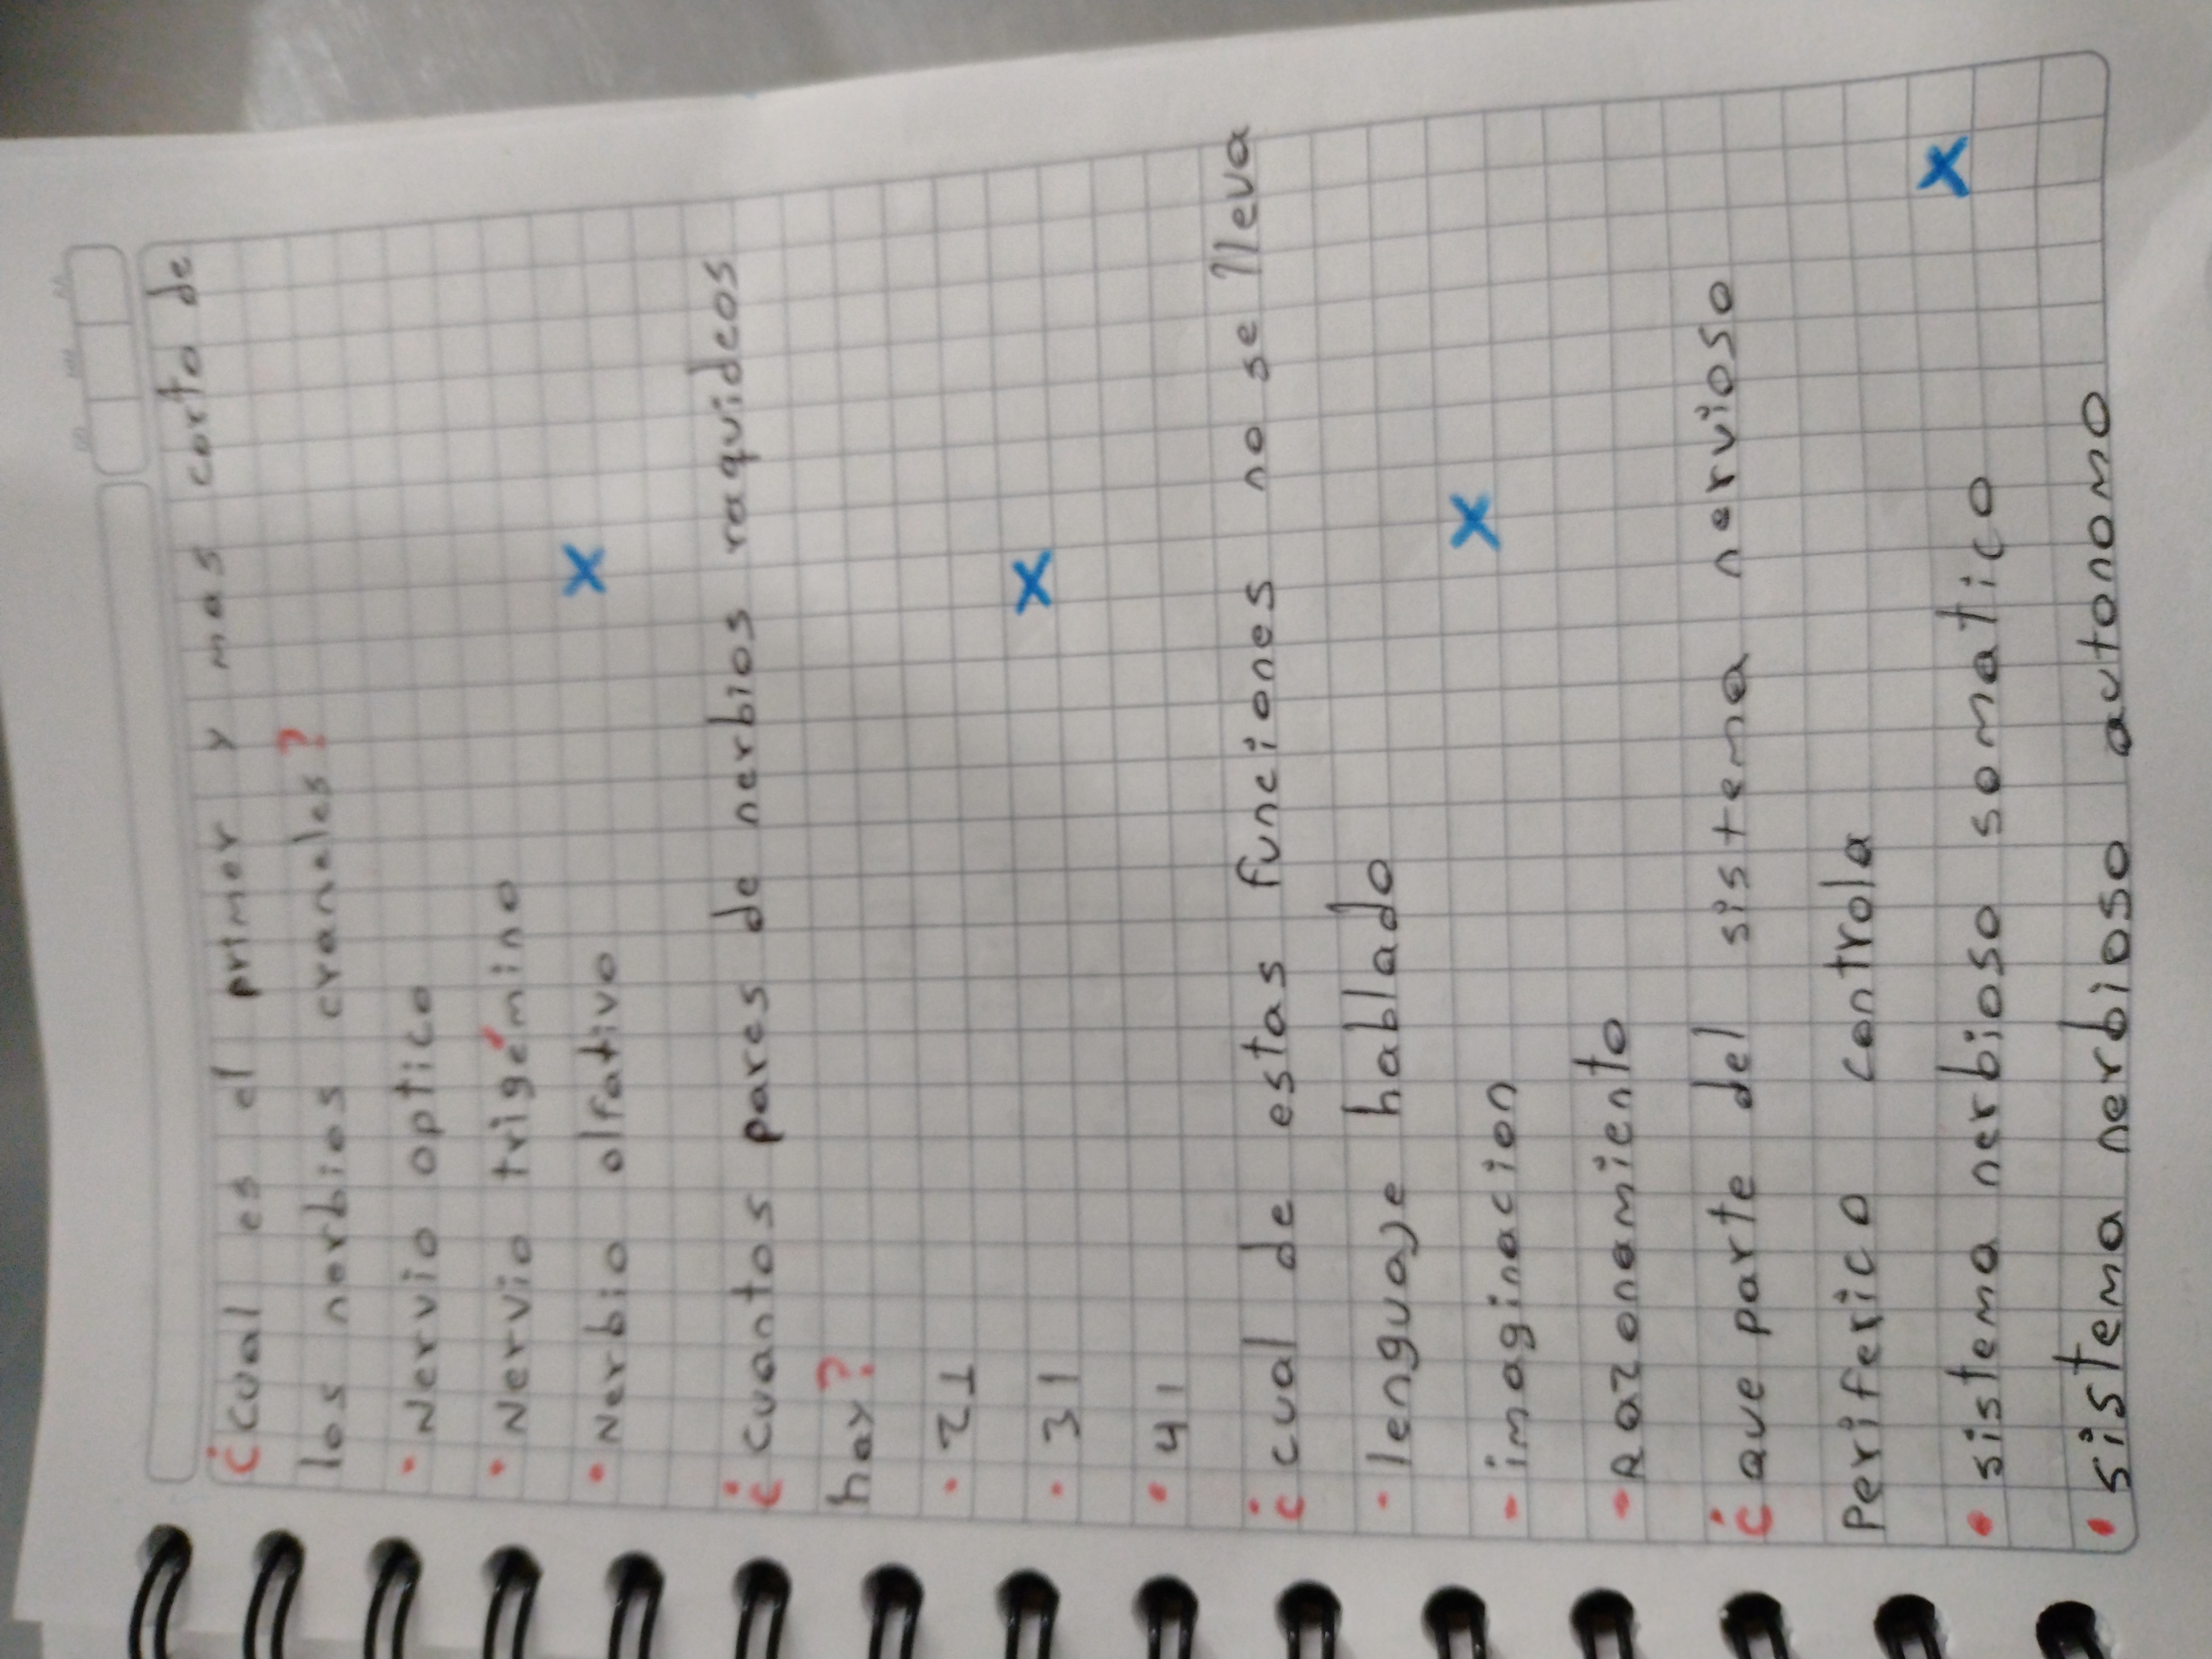 ¿cual es el primer y mas corto de
los nerbios craneles?
• Nervio optico
• Nervio trigémino
• Nerbio olfativo X
¿cuantos pares de nerbios raquideos
hay?
• 21
• 31 X
• 41
¿cual de estas funciones no se lleva
• lenguaje hablado
• imaginacion X
• Razonamiento
¿que parte del sistema nervioso
Periferico controla
• sistema nerbioso somatico X
• sistema nerbioso autonomo